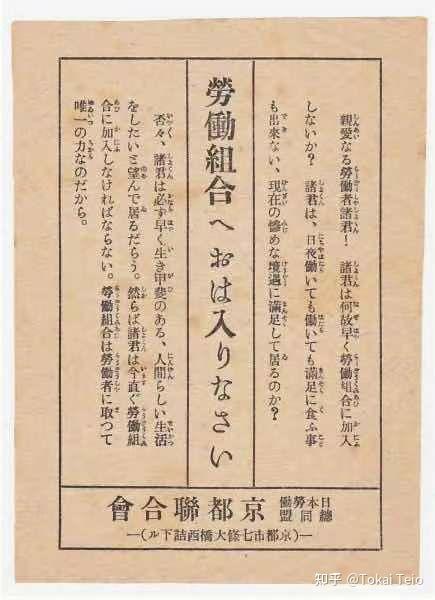 親愛なる勞働者諸君! 諸君は何故早く勞働組合に加入
しないか? 諸君は、日夜働いても働いても滿足に食ふ事
も出來ない、現在の慘めな境遇に滿足して居るのか?
勞働組合へおは入りなさい
否々、諸君は必ず早く生き甲斐のある、人間らしい生活
をしたいと望んで居るだらう。然らば諸君は今直ぐ勞働組
合に加入しなければならない。勞働組合は勞働者に取つて
唯一の力なのだから。
日本勞働
總同盟
京都聯合會
(京都市七條大橋西詰下ル)
知乎 @Tokai Teio